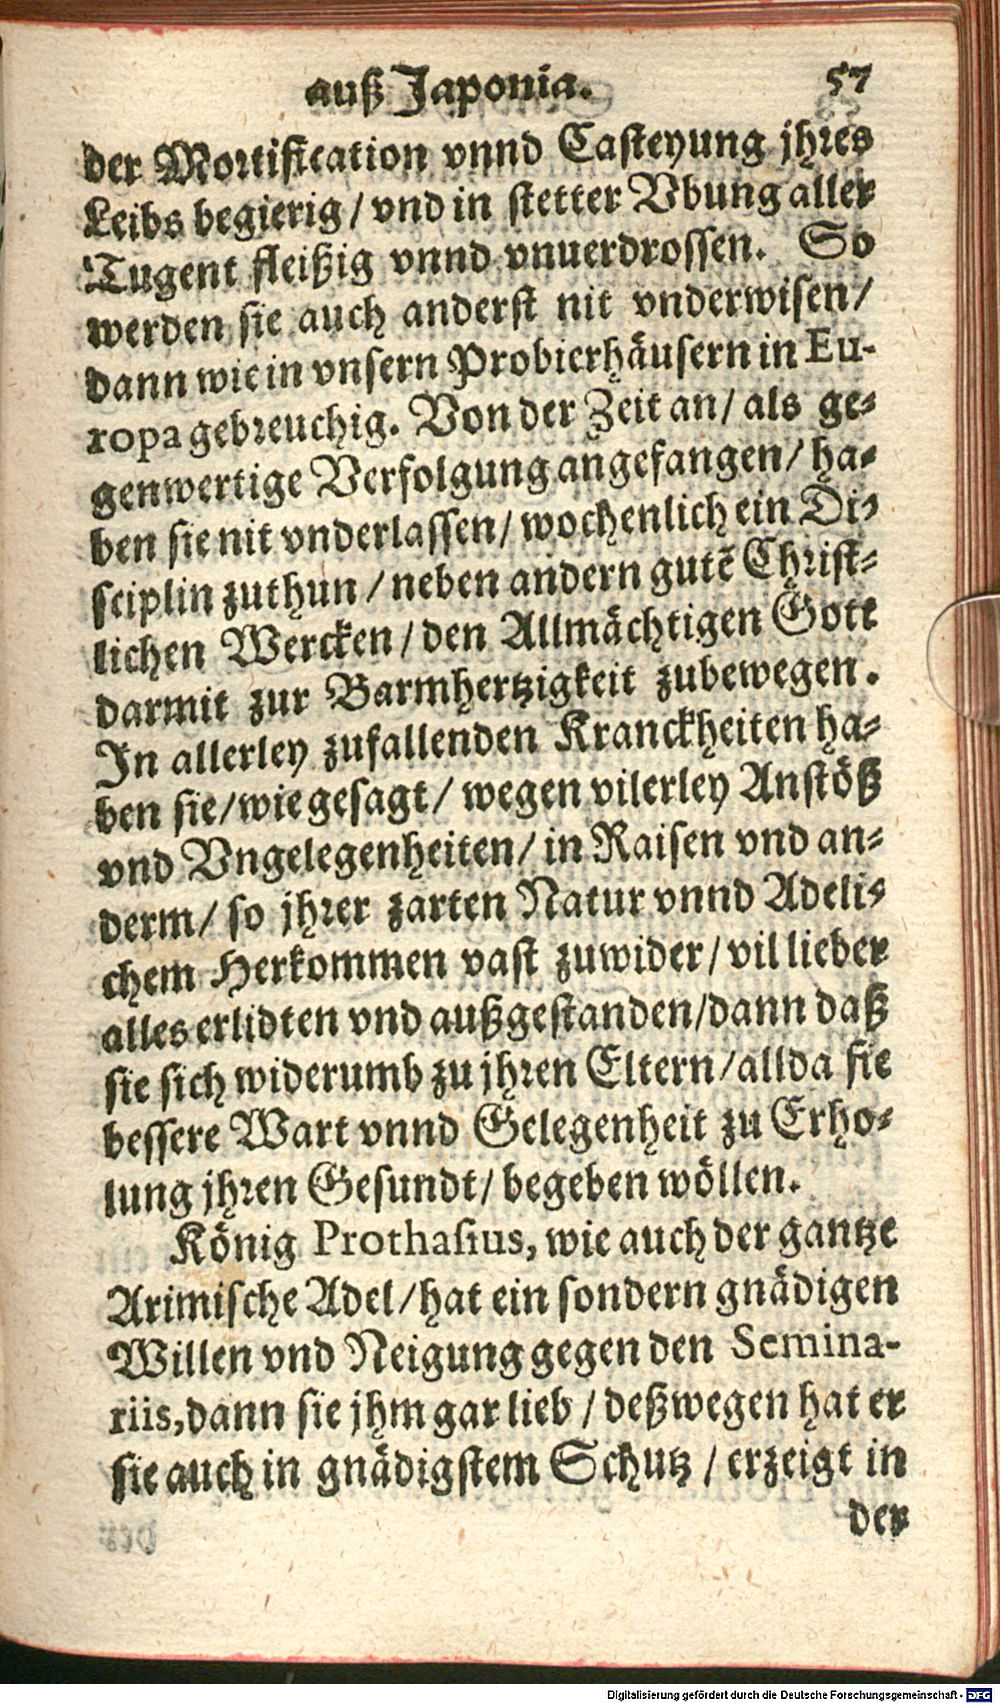 auß Japonia. 57
der Mortification vnnd Casteyung jhres
Leibs begierig / vnd in stetter Vbung aller
Tugent fleißig vnnd vnuerdrossen. So
werden sie auch anderst nit vnderwisen/
dann wie in vnsern Probierhäusern in Eu-
ropa gebreuchig. Von der Zeit an/ als ge-
genwertige Verfolgung angefangen/ ha-
ben sie nit vnderlassen/ wochenlich ein Di-
sciplin zuthun / neben andern gutē Christ-
lichen Wercken / den Allmächtigen Gott
darmit zur Barmhertzigkeit zubewegen.
In allerley zufallenden Kranckheiten ha-
ben sie/wie gesagt/ wegen vilerley Anstöß
vnd Vngelegenheiten/ in Raisen vnd an-
derm/ so jhrer zarten Natur vnnd Adeli-
chem Herkommen vast zuwider/ vil lieber
alles erlidten vnd außgestanden/dann daß
sie sich widerumb zu jhren Eltern/allda sie
bessere Wart vnnd Gelegenheit zu Erho-
lung jhren Gesundt/ begeben wöllen.
König Prothasius, wie auch der gantze
Arimische Adel/hat ein sondern gnädigen
Willen vnd Neigung gegen den Semina-
riis,dann sie jhm gar lieb / deßwegen hat er
sie auch in gnädigstem Schutz / erzeigt in
der
Digitalisierung gefördert durch die Deutsche Forschungsgemeinschaft - DFG